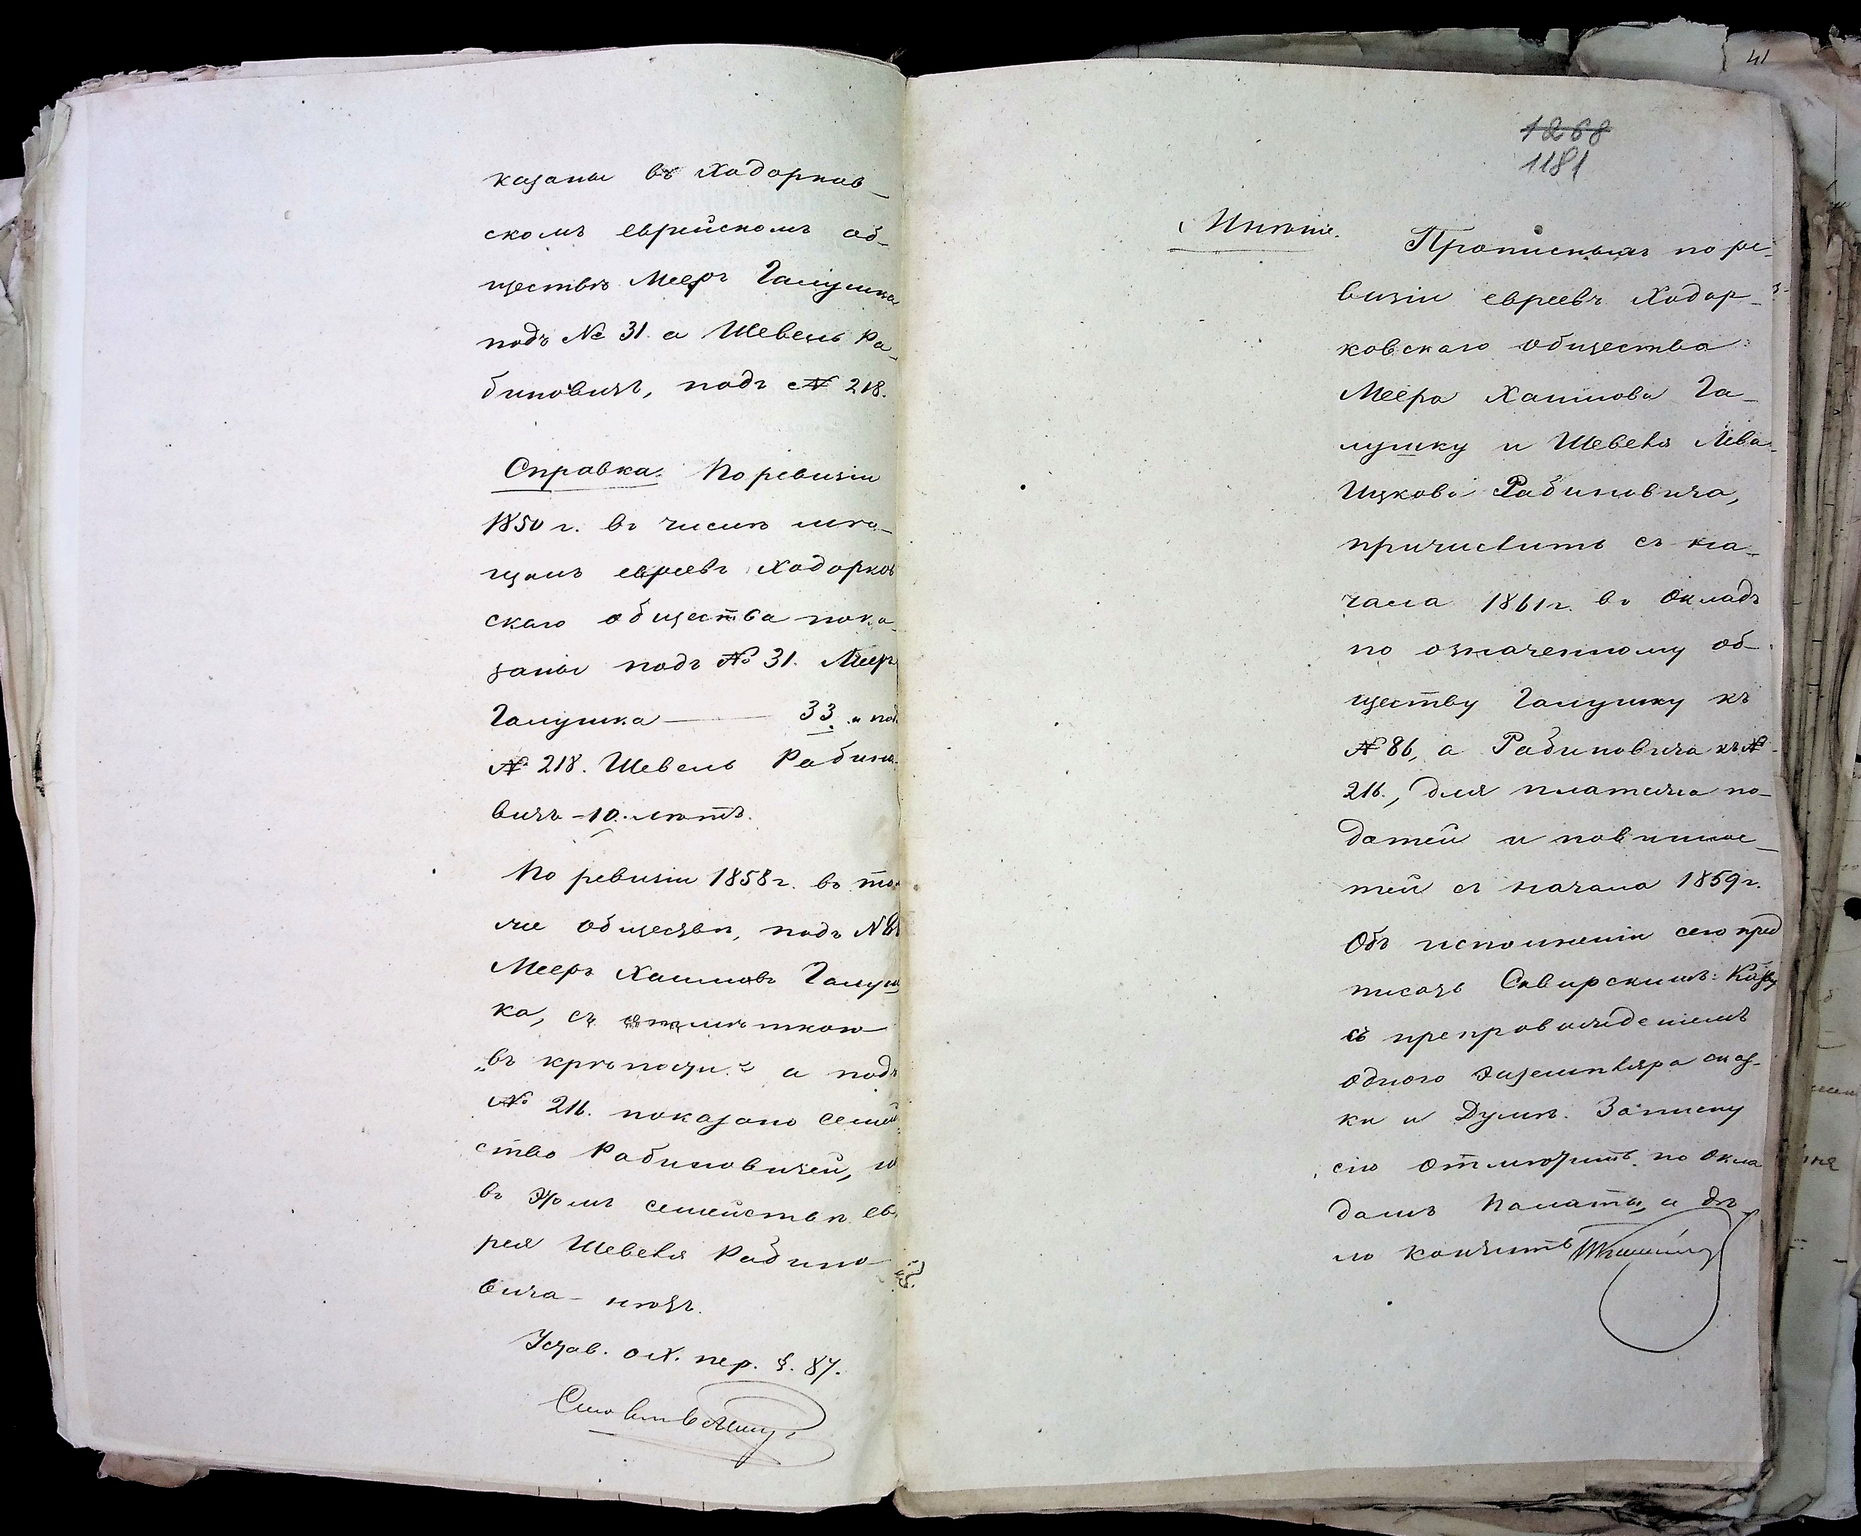 казаны въ Ходорков-
скомъ еврейскомъ об-
ществѣ Мееръ Галушка
подъ № 31. а Шевель Ра-
биновичъ, подъ № 218.
Справка. По ревизіи
1850 г. въ числѣ мѣ-
щанъ евреевъ Ходорков
скаго общества пока-
заны подъ № 31. Мееръ
Галушка — 33. и подъ
№ 218. Шевель Рабино-
вичъ - 10. лѣтъ.
По ревизіи 1858 г. въ том
же обществѣ, подъ № 86
Мееръ Хаимовъ Галуш
ка, съ отмѣткою
„въ крѣпости." а подъ
№ 216. показано семей
ство Рабиновичей, но
въ этомъ семействѣ ев-
рея Шевеля Рабино
вича - нѣтъ.
Устав. о Х. пер. §. 87.
41
1268
1181
Мнѣніе.
Прописныхъ по ре-
визіи евреевъ Ходор-
ковскаго общества
Меера Хаимова Га-
лушку и Шевеля Лейба-
Ицкова Рабиновича,
причислить съ на-
чала 1861 г. въ окладъ
по означенному об-
ществу Галушку къ
№ 86, а Рабиновича къ №
216., для платежа по-
датей и повиннос-
тей съ начала 1859 г.
Объ исполненіи сего пред
писать Сквирскимъ: Казн
съ препровожденіемъ
одного экземпляра сказ-
ки и Думѣ. Записку
сію отмѣтить по окла
дамъ Палаты, и дѣ-
ло кончить